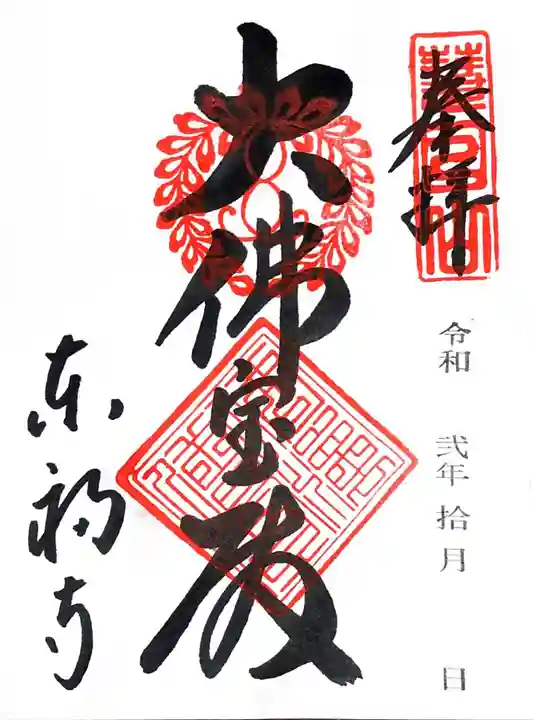 奉拝
令和 弐年 拾月 日
大佛宝殿
東福寺